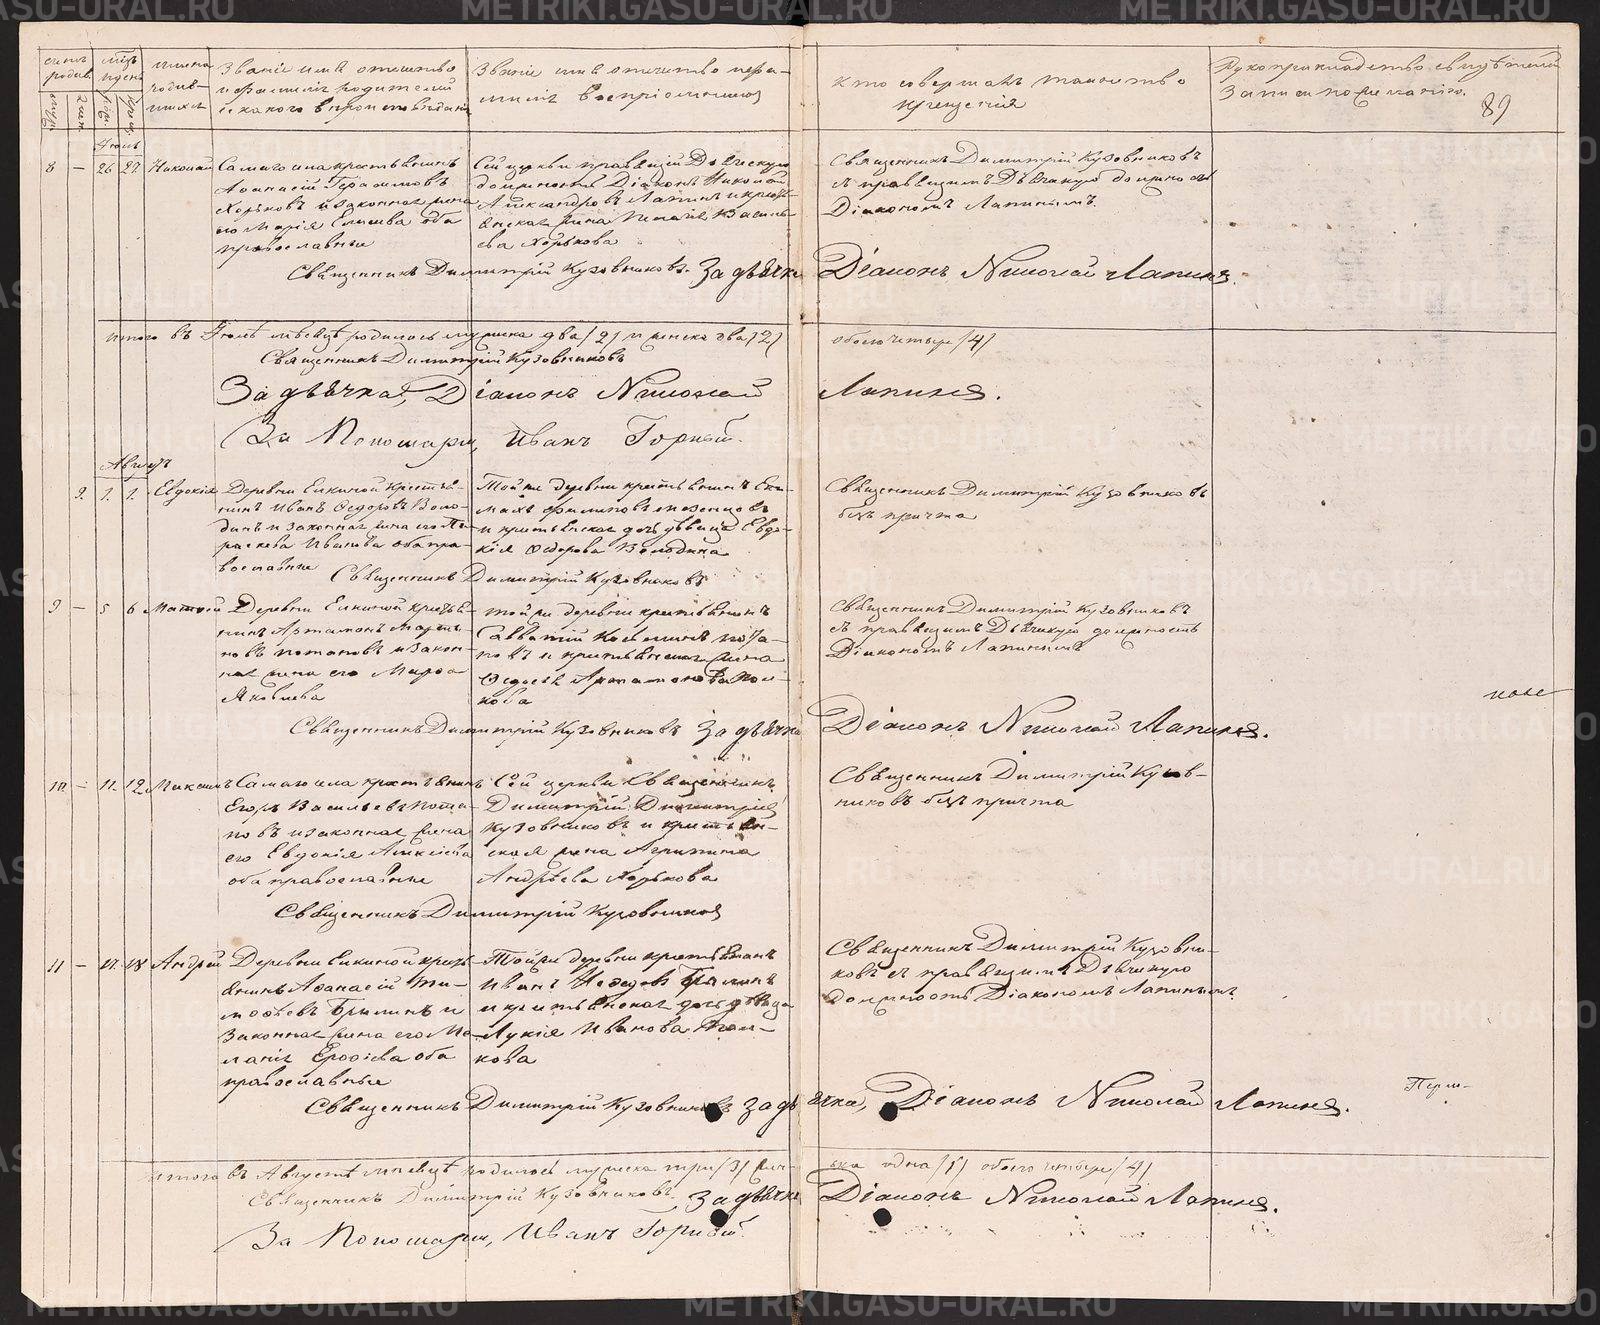 METRIKI.GASU-URAL.RU
89
счетъ родив.
мѣс. и день
имена родив-
шихся
Званіе имя отечество
и фамилія родителей
и какого вѣроисповѣданія
Званіе имя отечество и фами-
лія воспріемниковъ
кто совершалъ таинство
крещенія
Рукоприкладство свидѣтелей
записи по желанію
Іюль
8 — 26 27 Николай
Самаго села крестьянинъ
Аѳанасій Герасимовъ
Хорьковъ и законная жена
его Марія оба
православные
Сей церкви правящій Дьяческую
должность Діаконъ Николай
Александровъ Лапинъ и кресть-
янская жена Василь-
ева Хорькова
Священникъ Димитрій Кузовниковъ
и правящимъ Дьячкую должность
Діакономъ Лапинымъ
Священникъ Димитрій Кузовниковъ. За дьячка Діаконъ Николай Лапинъ.
итого въ Іюлѣ мѣсяцѣ родилось мужска два /2/ и женска два /2/ обоего четыре /4/
Священникъ Димитрій Кузовниковъ
За дьячка, Діаконъ Николай Лапинъ.
За Пономаря, Иванъ Горный.
Августъ
9. 1. 1. Евдокія
Деревни Елкиной крестья-
нинъ Иванъ Ѳедоровъ Воло-
динъ и законная жена его Па-
раскева Иванова оба пра-
вославные
Той же деревни крестьянинъ
Филиповъ
и крестьянская дочь дѣвица Евдо-
кія Ѳедорова Володина
Священникъ Димитрій Кузовниковъ
безъ причта
Священникъ Димитрій Кузовниковъ
9 — 5 6 Матвей
Деревни Елкиной крестья-
нинъ Артамонъ Марты-
новъ Потаповъ и закон-
ная жена его Марѳа
Яковлева
той же деревни крестьянинъ
Савватій Пота-
повъ и крестьянская жена
Ѳедосья Артамонова
кова
Священникъ Димитрій Кузовниковъ
и правящимъ Дьячкую должность
Діакономъ Лапинымъ
Священникъ Димитрій Кузовниковъ За дьячка Діаконъ Николай Лапинъ.
10 — 11. 12 Максимъ
Самаго села крестьянинъ
Егоръ Васильевъ Пота-
повъ и законная жена
его Евдокія Алексѣева
оба православные
Сей церкви Священникъ
Димитрій Димитріевъ
Кузовниковъ и крестьян-
ская жена Агрипина
Андрѣева Хорькова
Священникъ Димитрій Кузов-
никовъ безъ причта
Священникъ Димитрій Кузовниковъ
11 — 17. 18 Андрей
Деревни Елкиной кресть-
янинъ Аѳанасій Ти-
моѳѣевъ Брылинъ и
законная жена его Ме-
ланія Ероѳѣева оба
православные
Той же деревни крестьянинъ
Иванъ
и крестьянская дочь дѣвица
Лукія Иванова
кова
Священникъ Димитрій Кузовни-
ковъ и правящимъ Дьячкую
должность Діакономъ Лапинымъ
Священникъ Димитрій Кузовниковъ За дьячка, Діаконъ Николай Лапинъ.
итого въ Августѣ мѣсяцѣ родилось мужска три /3/ жен-
ска одна /1/ обоего четыре /4/
Священникъ Димитрій Кузовниковъ. За дьячка Діаконъ Николай Лапинъ.
За Пономаря, Иванъ Горный.